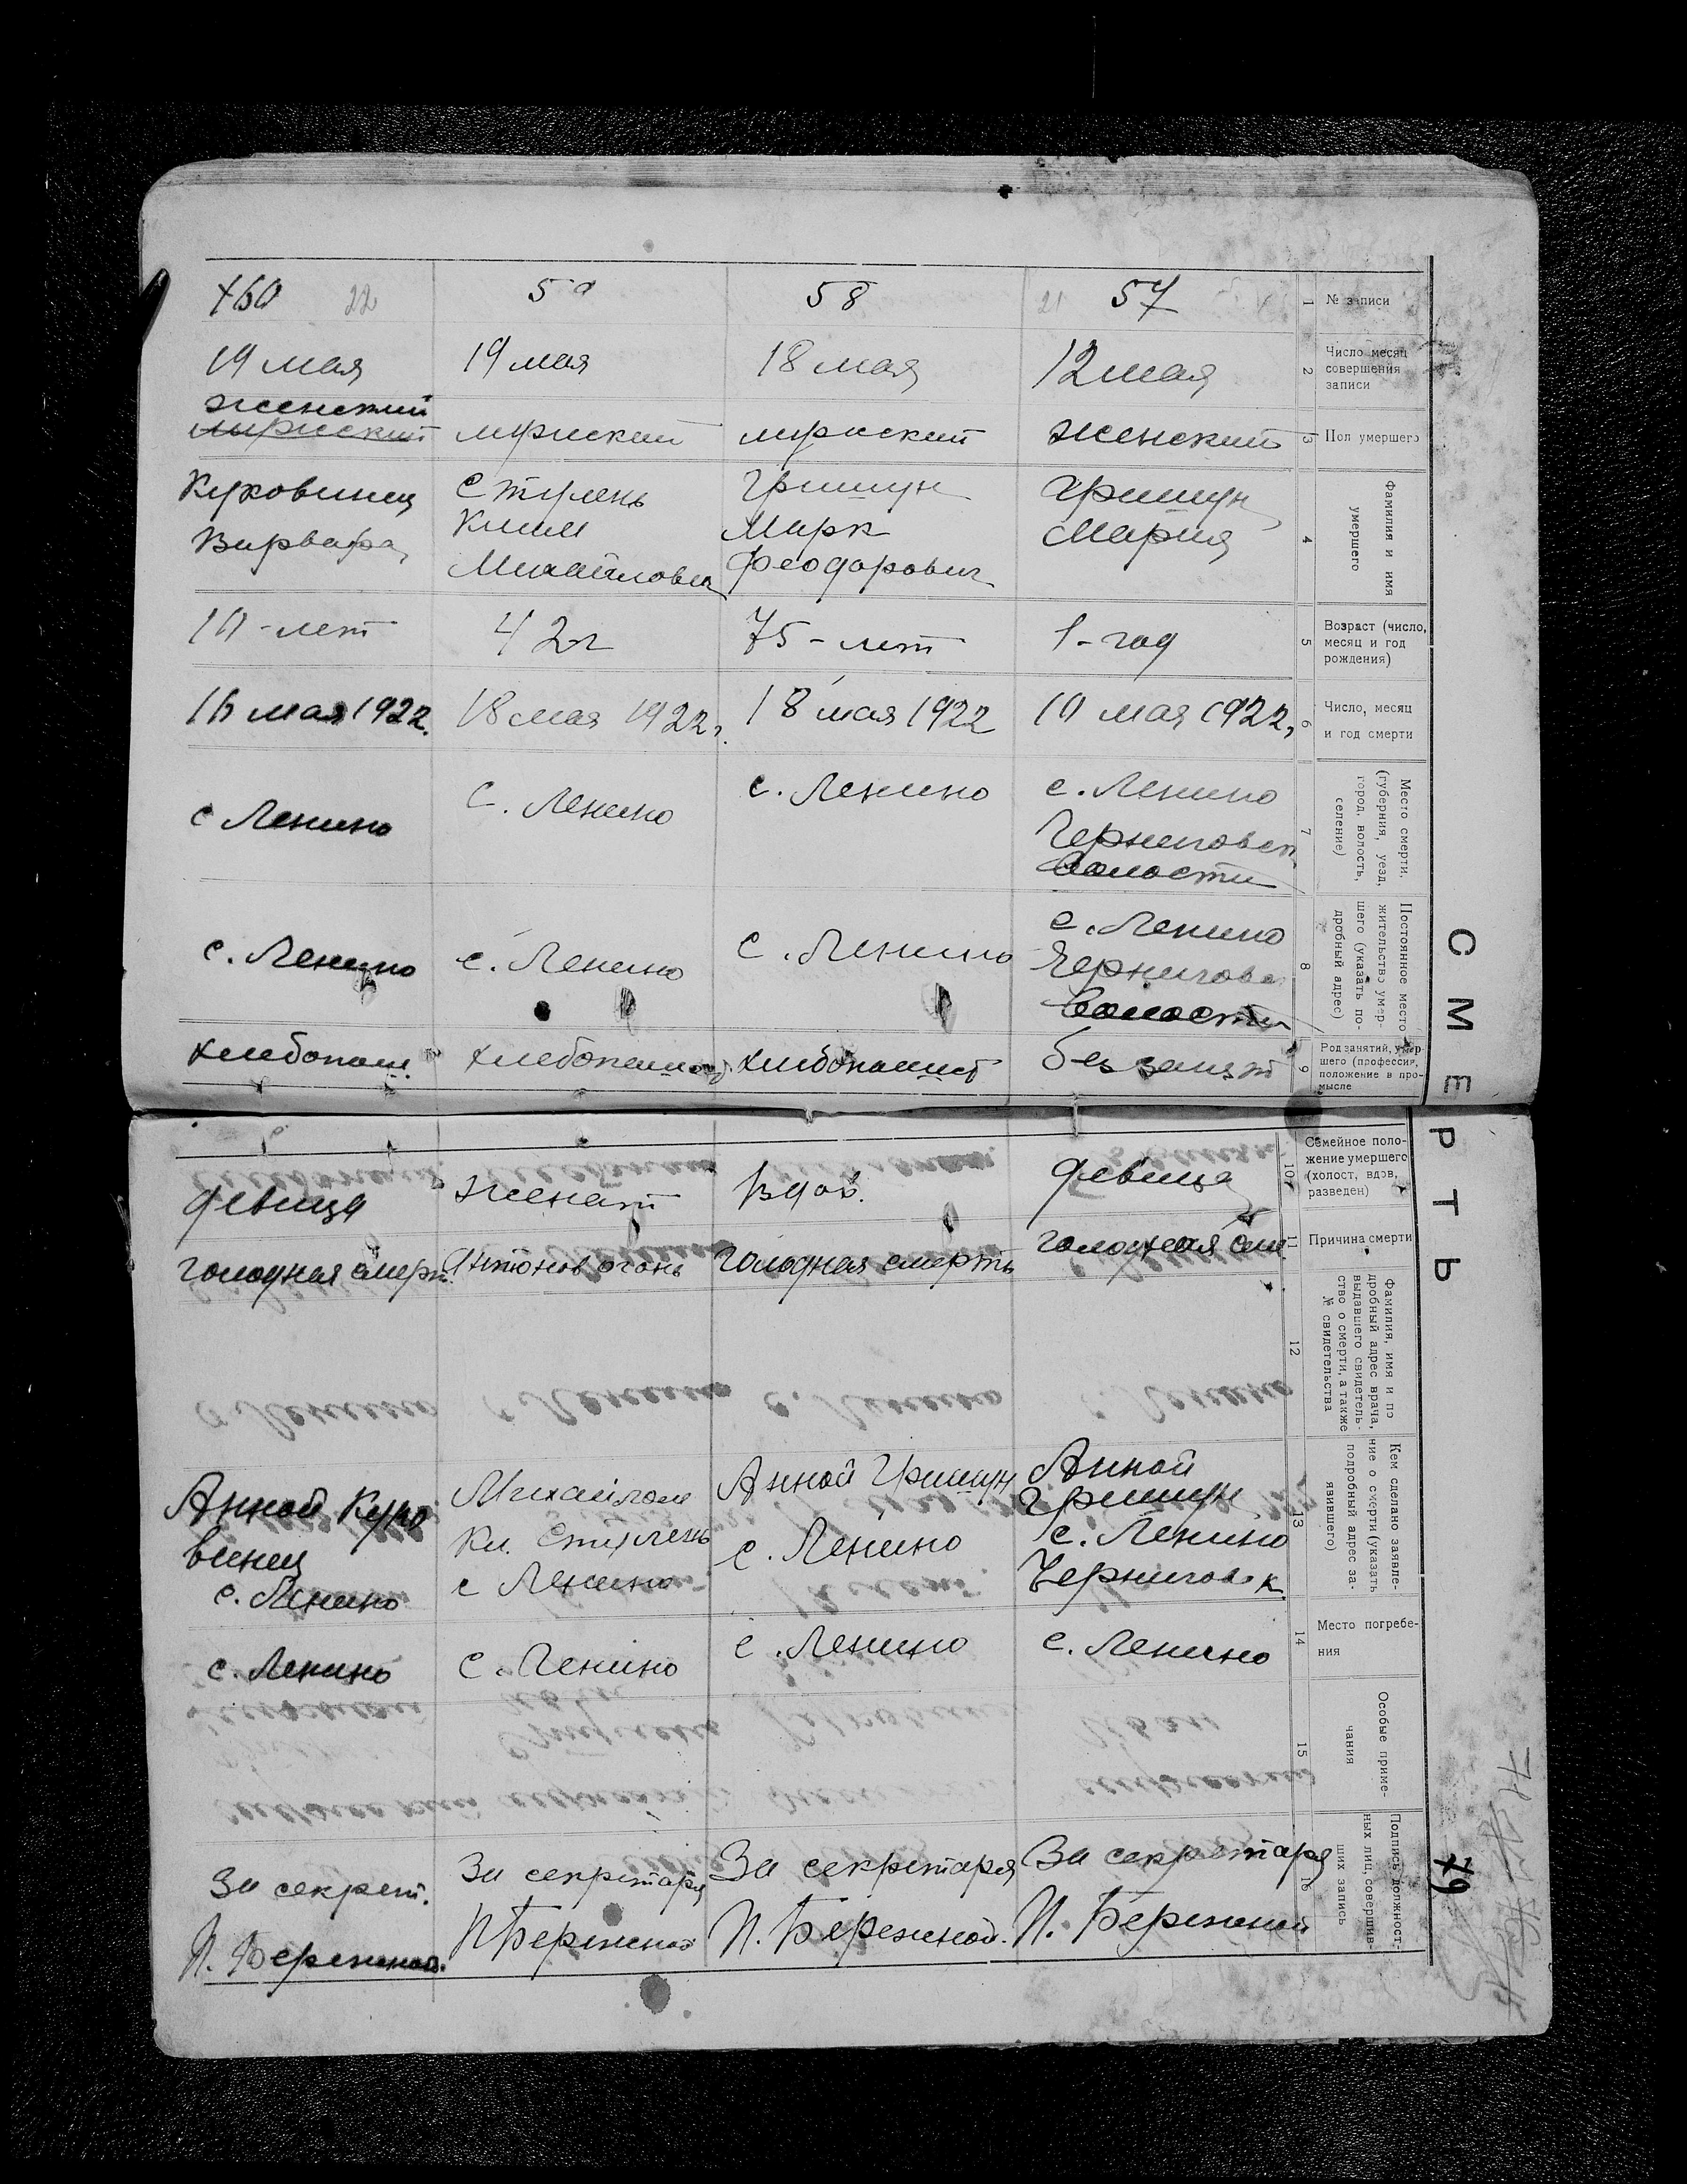 СМЕРТЬ
79
№ записи
1
57
58
59
60
22
21
Число месяц
совершения
записи
2
12 мая
18 мая
19 мая
19 мая
Пол умершего
3
женский
мужский
мужский
женский
мужский
Фамилия и имя
умершего
4
Гришун
Мария
Гришун
Марк
Феодорович
Стулень
Клим
Михайлович
Куковинец
Варвара
Возраст (число,
месяц и год
рождения)
5
1 - год
75 - лет
42 г
10 - лет
Число, месяц
и год смерти
6
10 мая 1922,
18 мая 1922
18 мая 1922 г.
16 мая 1922.
Место смерти.
(губерния, уезд,
город, волость,
селение)
7
с. Ленино
Черниговск
волости
с. Ленино
с. Ленино
с Ленино
Постоянное место
жительство умер-
шего (указать по-
дробный адрес)
8
с. Ленино
Чернигово
волости
с. Ленино
с. Ленино
с. Ленино
Род занятий, умер-
шего (професcия,
положение в про-
мысле
9
без занят
хлебопашес
хлебопаш.
Семейное поло-
жение умершего
(холост, вдов,
разведен)
10
девица
вдов.
женат
девица
Причина смерти
11
голодная см.
голодная смерть
Антонов огонь
голодная смерт.
Фамилия, имя и по
дробный адрес врача,
выдавшего свидетель-
ство о смерти, а также
№ свидетельства
12
Кем сделано заявле-
ние о смерти (указать
подробный адрес за-
явившего)
13
Анной
Гришун
с. Ленино
Черниговск
Анной Гришун
с. Ленино
Михайлом
Кл. Стулень
с Ленино
Анной Куко
винец
с. Ленино
Место погребе-
ния
14
с. Ленино
с. Ленино
с. Ленино
с. Ленино
Особые приме-
чания
15
Подпись должност-
ных лиц, совершив-
ших запись
16
За секретаря
П. Бережной
За секретаря
П. Бережной.
За секретаря
П Бережной
За секрет.
П. Бережной.